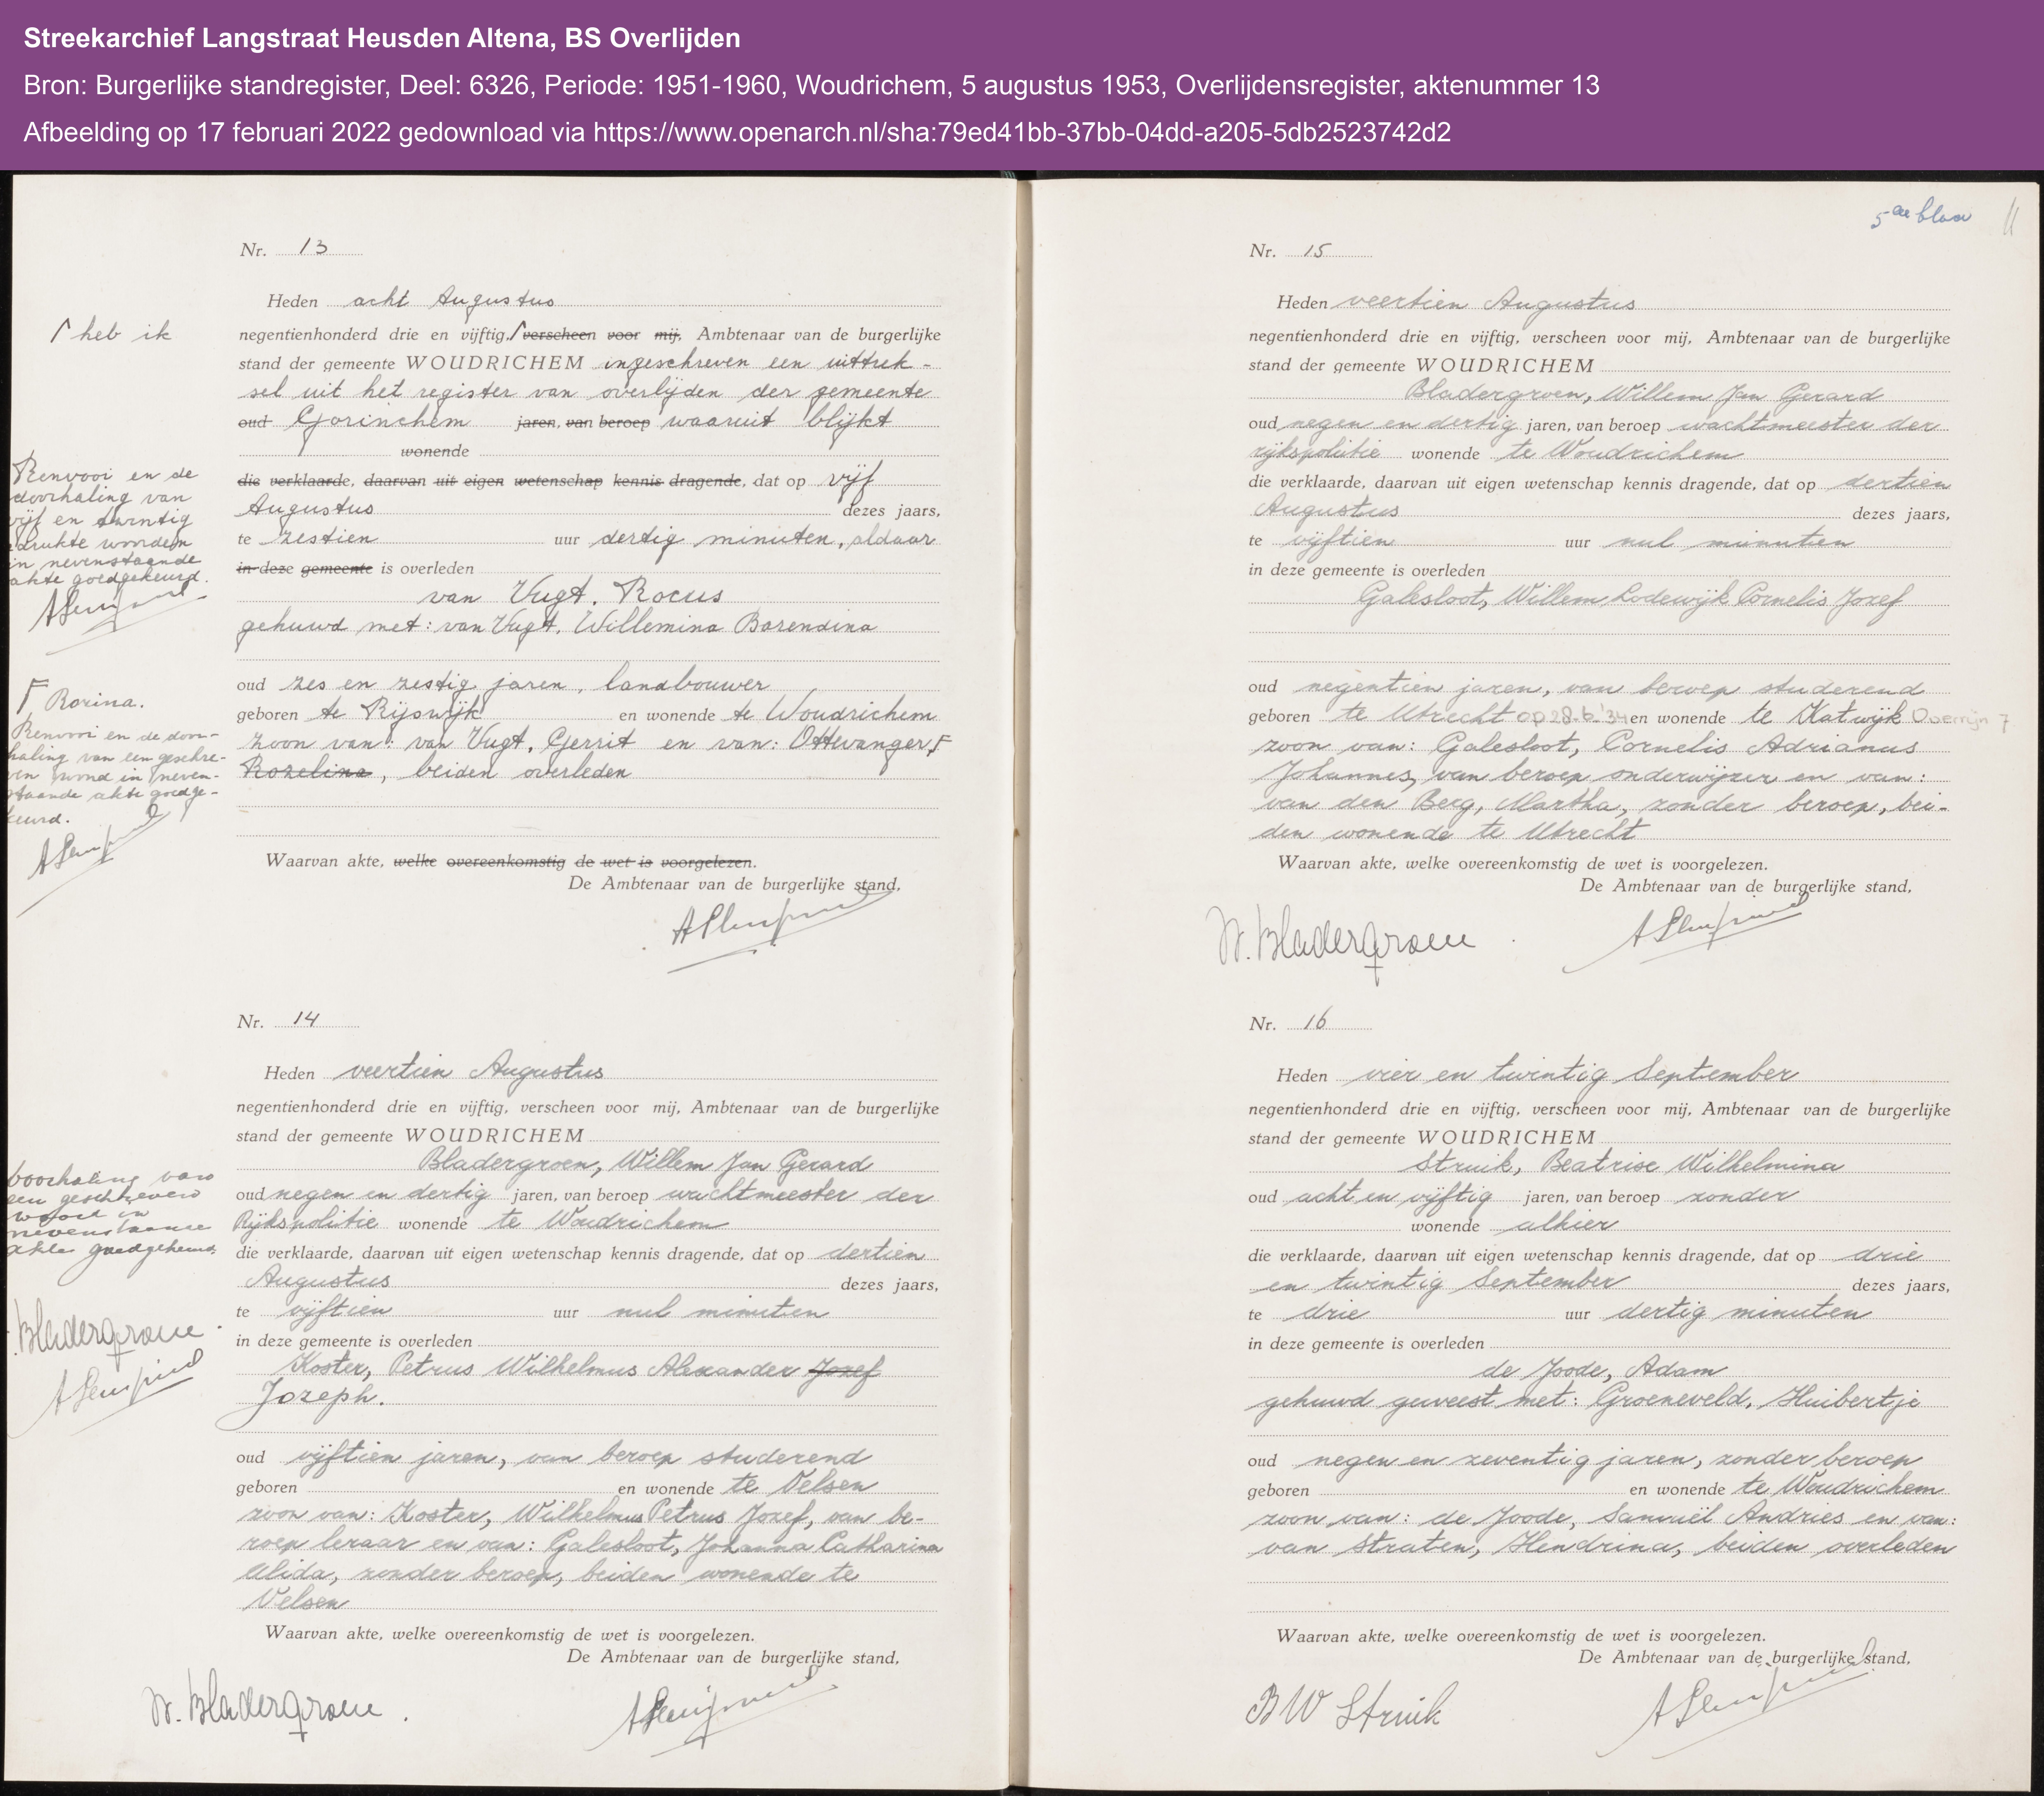 Streekarchief Langstraat Heusden Altena, BS Overlijden
Bron: Burgerlijke standregister, Deel: 6326, Periode: 1951-1960, Woudrichem, 5 augustus 1953, Overlijdensregister, aktenummer 13
Afbeelding op 17 februari 2022 gedownload via https://www.openarch.nl/sha:79ed41bb-37bb-04dd-a205-5db2523742d2
Nr. 13
Heden acht Augustus
negentienhonderd drie en vijftig, ⌈ verscheen voor mij, Ambtenaar van de burgerlijke
stand der gemeente WOUDRICHEM ingeschreven een uittrek-
sel uit het register van overlijden der gemeente
oud Gorinchem jaren, van beroep waaruit blijkt
wonende
die verklaarde, daarvan uit eigen wetenschap kennis dragende, dat op vijf
Augustus dezes jaars,
te zestien uur dertig minuten, aldaar
in deze gemeente is overleden
van Vugt, Rocus
gehuwd met: van Vugt, Willemina Barendina
oud zes en zestig jaren, landbouwer
geboren te Rijswijk en wonende te Woudrichem
zoon van: van Vugt, Gerrit en van: Ottevanger, F
Rozelina, beiden overleden
Waarvan akte, welke overeenkomstig de wet is voorgelezen.
De Ambtenaar van de burgerlijke stand,
⌈ heb ik
Renvooi en de
doorhaling van
vijf en twintig
drukte woorden
in nevenstaande
akte goedgekeurd.
F Rorina.
Renvooi en de door-
haling van een geschre-
ven woord in neven-
staande akte goedge-
keurd.
Nr. 14
Heden veertien Augustus
negentienhonderd drie en vijftig, verscheen voor mij, Ambtenaar van de burgerlijke
stand der gemeente WOUDRICHEM
Bladergroen, Willem Jan Gerard
oud negen en dertig jaren, van beroep wachtmeester der
Rijkspolitie wonende te Woudrichem
die verklaarde, daarvan uit eigen wetenschap kennis dragende, dat op dertien
Augustus dezes jaars,
te vijftien uur nul minuten
in deze gemeente is overleden
Koster, Petrus Wilhelmus Alexander Jozef
Jozeph.
oud vijftien jaren, van beroep studerend
geboren en wonende te Velsen
zoon van: Koster, Wilhelmus Petrus Jozef, van be-
roep leraar en van: Galesloot, Johanna Catharina
Alida, zonder beroep, beiden wonende te
Velsen
Waarvan akte, welke overeenkomstig de wet is voorgelezen.
De Ambtenaar van de burgerlijke stand,
W. Bladergroen
Doorhaling van
een geschreven
woord in
nevenstaande
akte goedgekeurd.
Bladergroen
5de blad
Nr. 15
Heden veertien Augustus
negentienhonderd drie en vijftig, verscheen voor mij, Ambtenaar van de burgerlijke
stand der gemeente WOUDRICHEM
Bladergroen, Willem Jan Gerard
oud negen en dertig jaren, van beroep wachtmeester der
rijkspolitie wonende te Woudrichem
die verklaarde, daarvan uit eigen wetenschap kennis dragende, dat op dertien
Augustus dezes jaars,
te vijftien uur nul minuten
in deze gemeente is overleden
Galesloot, Willem Lodewijk Cornelis Jozef
oud negentien jaren, van beroep studerend
geboren te Utrecht op 28-6-'34 en wonende te Katwijk Overrijn ?
zoon van: Galesloot, Cornelis Adrianus
Johannes, van beroep onderwijzer en van:
van den Berg, Martha, zonder beroep, bei-
den wonende te Utrecht
Waarvan akte, welke overeenkomstig de wet is voorgelezen.
De Ambtenaar van de burgerlijke stand,
W. Bladergroen
Nr. 16
Heden vier en twintig September
negentienhonderd drie en vijftig, verscheen voor mij, Ambtenaar van de burgerlijke
stand der gemeente WOUDRICHEM
Struik, Beatrise Wilhelmina
oud acht en vijftig jaren, van beroep zonder
wonende alhier
die verklaarde, daarvan uit eigen wetenschap kennis dragende, dat op drie
en twintig September dezes jaars,
te drie uur dertig minuten
in deze gemeente is overleden
de Joode, Adam
gehuwd geweest met: Groeneveld, Huibertje
oud negen en zeventig jaren, zonder beroep
geboren en wonende te Woudrichem
zoon van: de Joode, Samuël Andries en van:
van Straten, Hendrina, beiden overleden
Waarvan akte, welke overeenkomstig de wet is voorgelezen.
De Ambtenaar van de burgerlijke stand,
BW Struik